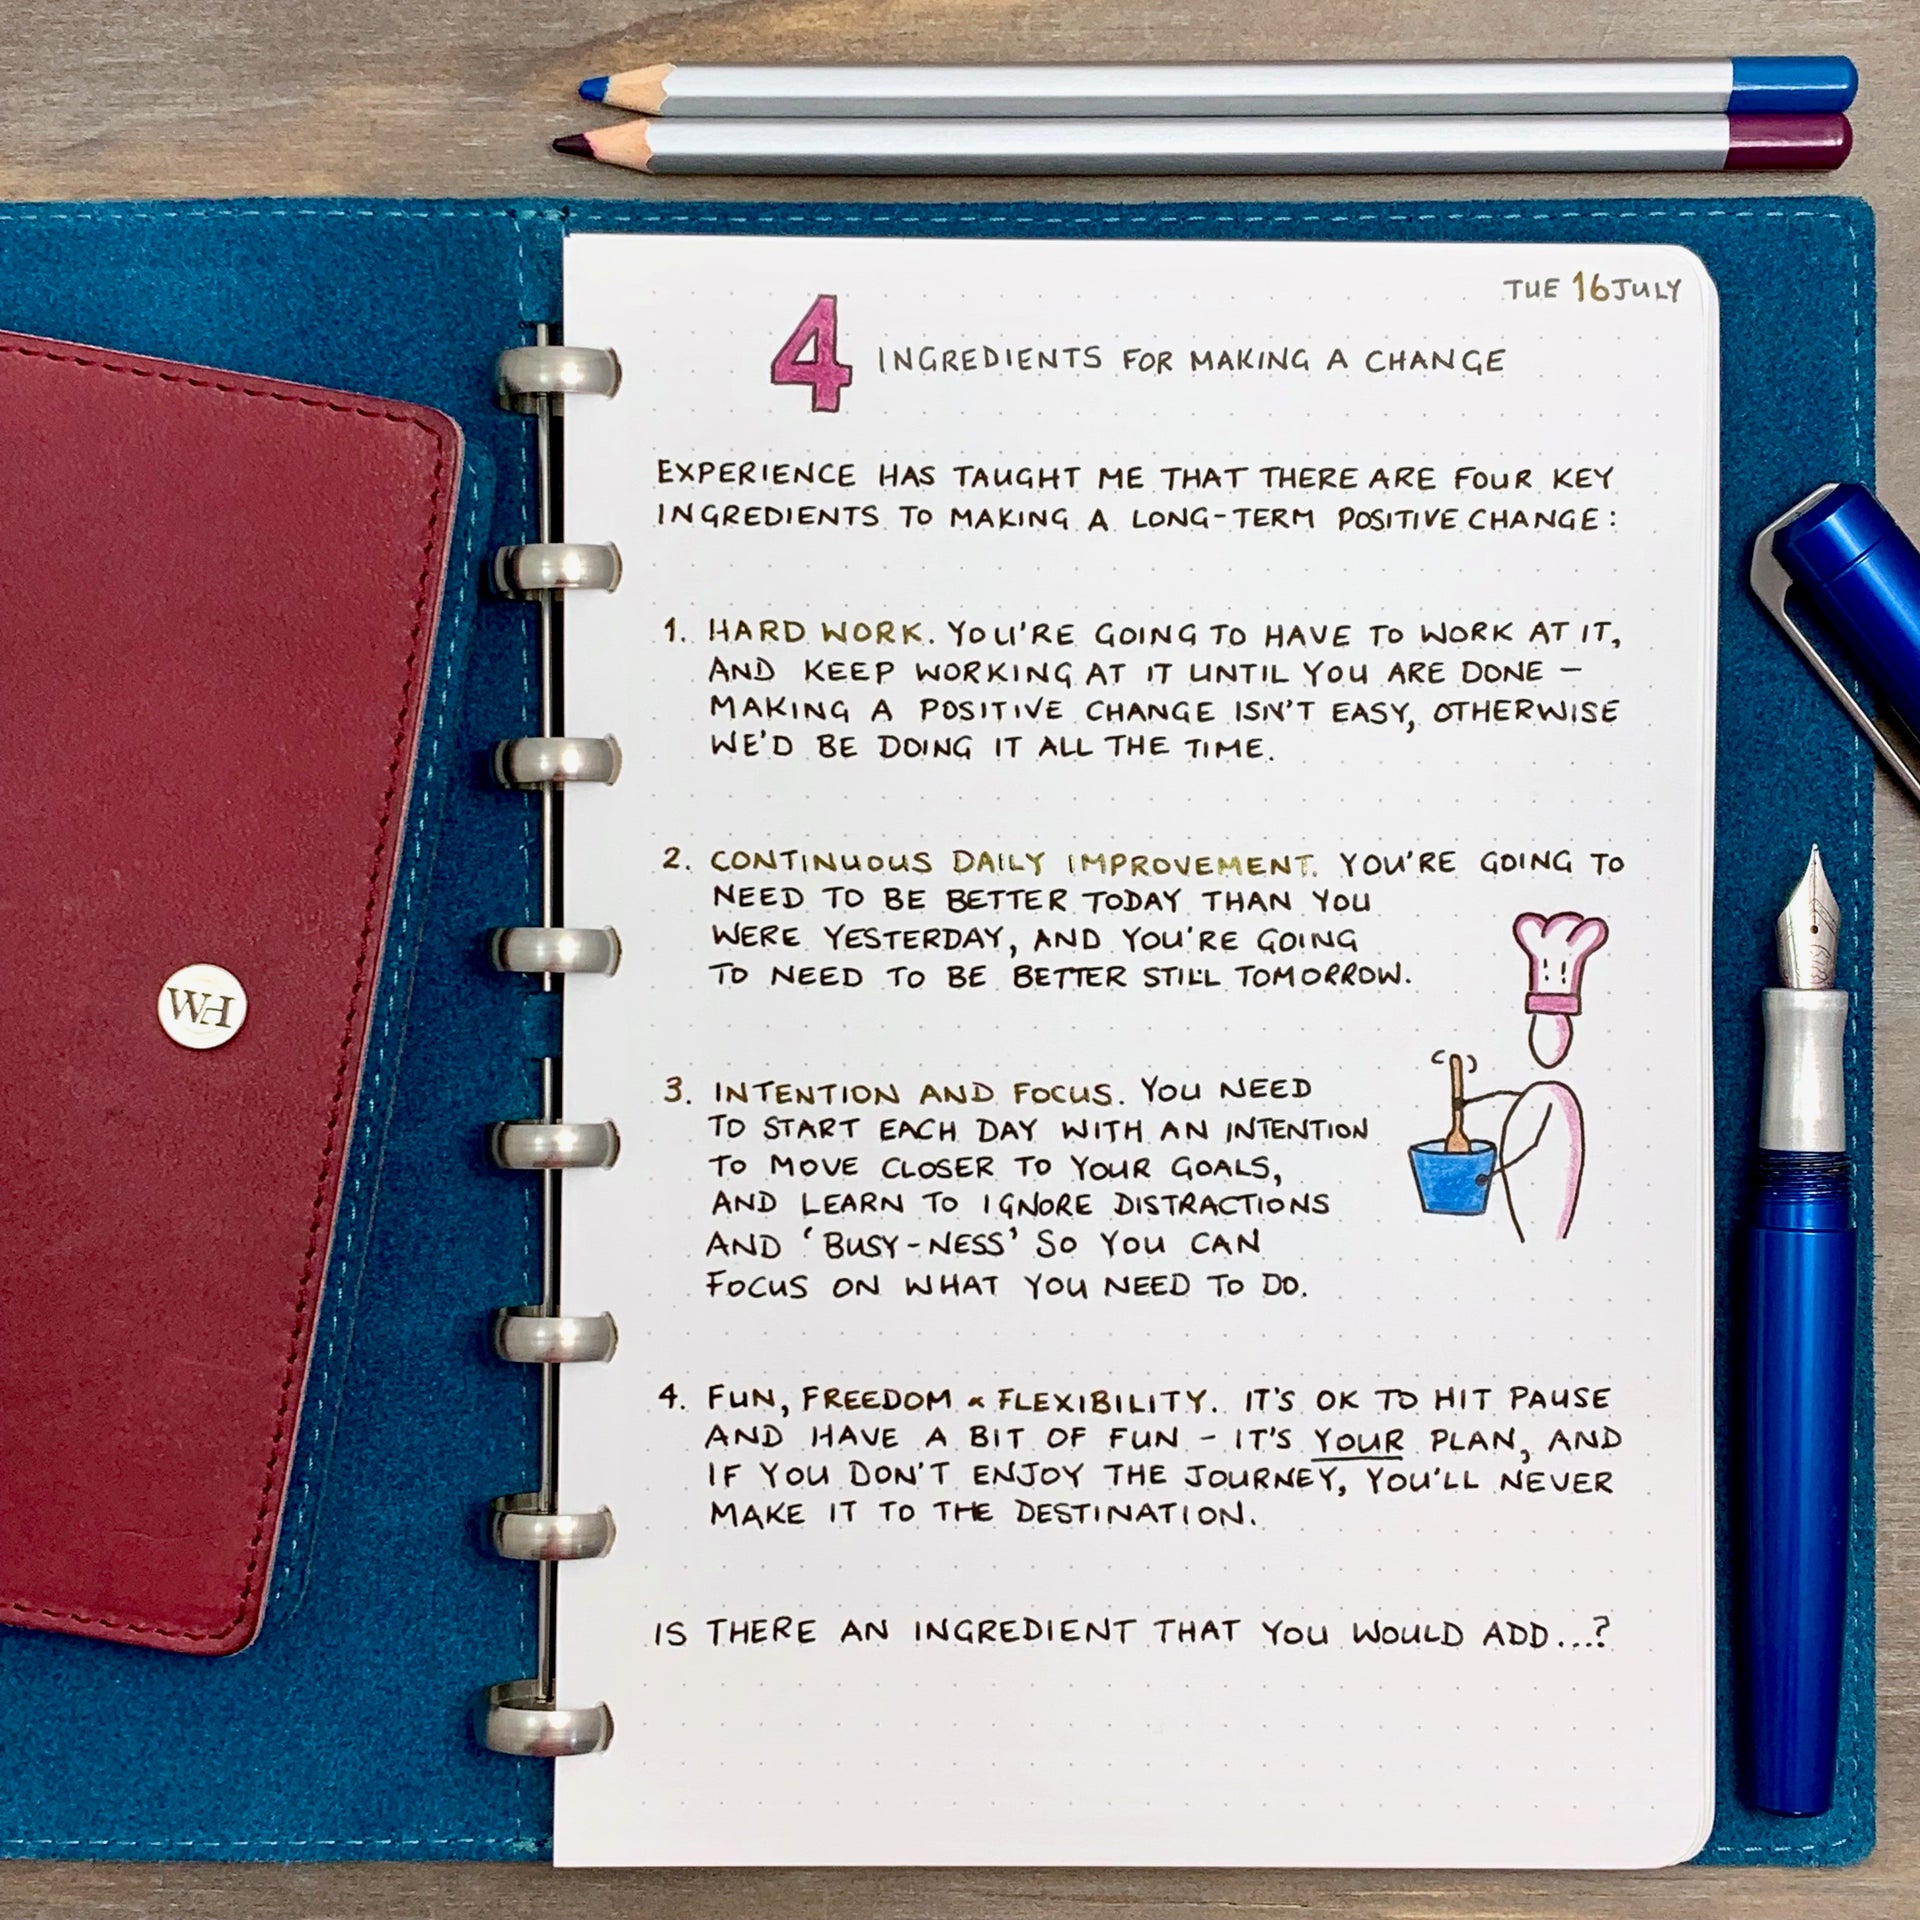 TUE 16 JULY
4 INGREDIENTS FOR MAKING A CHANGE
EXPERIENCE HAS TAUGHT ME THAT THERE ARE FOUR KEY
INGREDIENTS TO MAKING A LONG-TERM POSITIVE CHANGE:
1. HARD WORK. YOU'RE GOING TO HAVE TO WORK AT IT,
AND KEEP WORKING AT IT UNTIL YOU ARE DONE –
MAKING A POSITIVE CHANGE ISN'T EASY, OTHERWISE
WE'D BE DOING IT ALL THE TIME.
2. CONTINUOUS DAILY IMPROVEMENT. YOU'RE GOING TO
NEED TO BE BETTER TODAY THAN YOU
WERE YESTERDAY, AND YOU'RE GOING
TO NEED TO BE BETTER STILL TOMORROW.
3. INTENTION AND FOCUS. YOU NEED
TO START EACH DAY WITH AN INTENTION
TO MOVE CLOSER TO YOUR GOALS,
AND LEARN TO IGNORE DISTRACTIONS
AND 'BUSY-NESS' SO YOU CAN
FOCUS ON WHAT YOU NEED TO DO.
4. FUN, FREEDOM & FLEXIBILITY. IT'S OK TO HIT PAUSE
AND HAVE A BIT OF FUN – IT'S YOUR PLAN, AND
IF YOU DON'T ENJOY THE JOURNEY, YOU'LL NEVER
MAKE IT TO THE DESTINATION.
IS THERE AN INGREDIENT THAT YOU WOULD ADD...?
WH